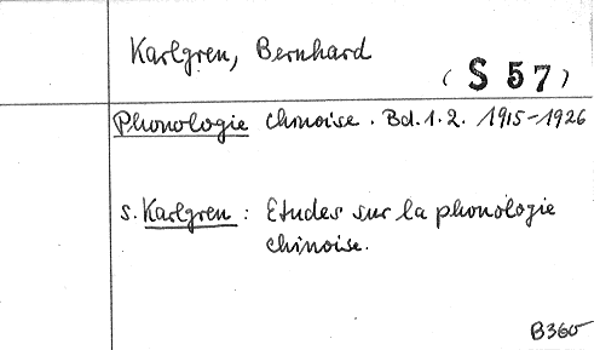 Karlgren, Bernhard
(S 57)
Phonologie chinoise. Bd. 1.2. 1915-1926
s. Karlgren: Etudes sur la phonologie
chinoise.
B360